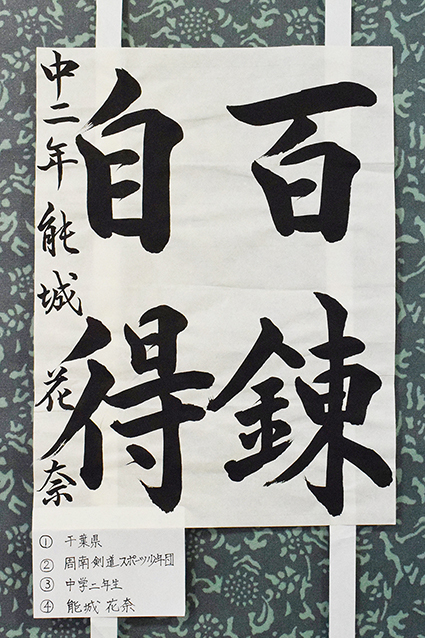 百錬
自得
中二年 能城 花奈
① 千葉県
② 周南剣道スポーツ少年団
③ 中学二年生
④ 能城 花奈